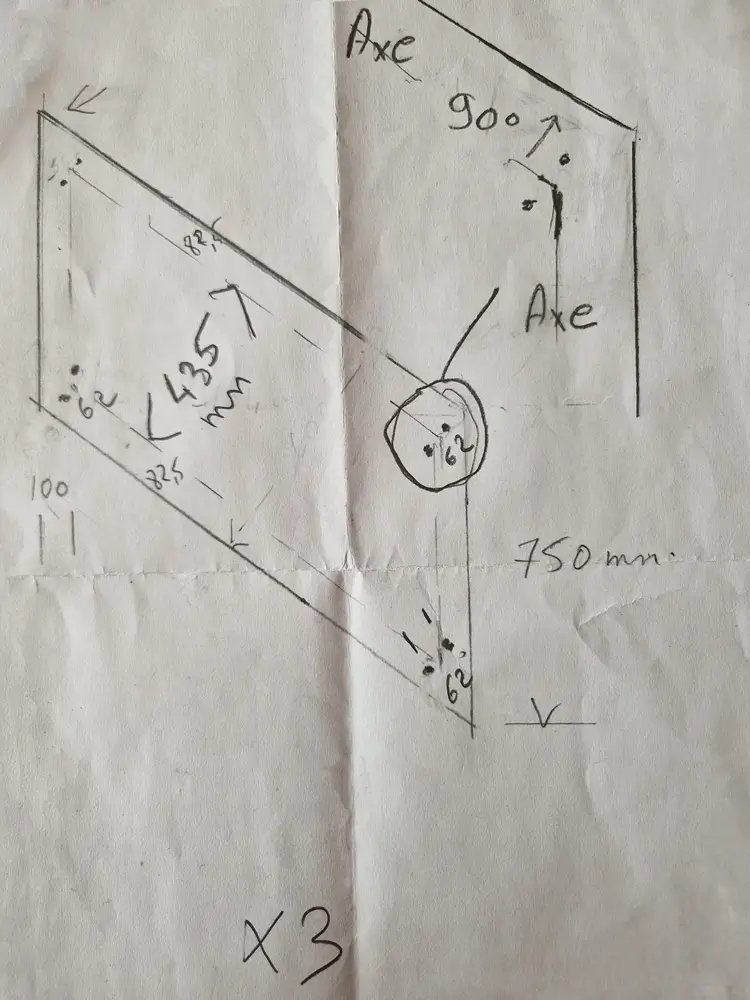 Axe
90°
82,5
435
mm
Axe
62
62
82,5
100
750mm.
62
X3